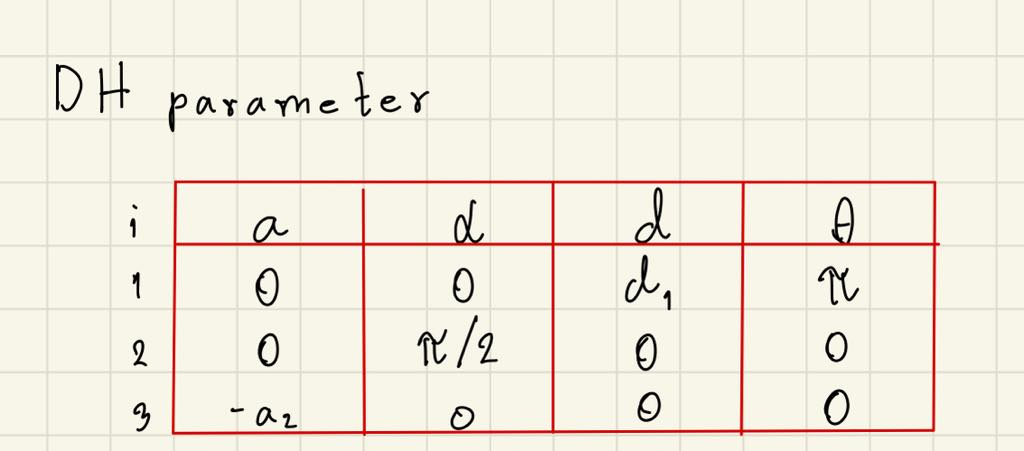 DH parameter
i a α d θ
1 0 0 d₁ π
2 0 π/2 0 0
3 -a₂ 0 0 0